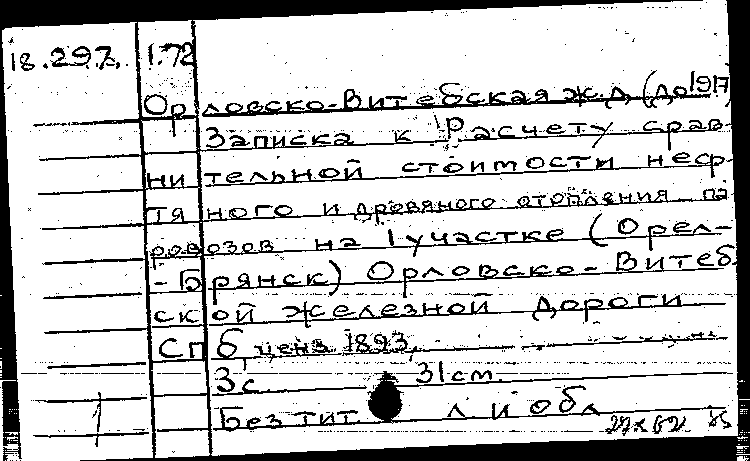 18.297. 1.72
Орловско-Витебская ж.д. (до 1917)
Записка к Расчету срав-
нительной стоимости неф-
тяного и дровяного отопления па-
ровозов на 1 участке (Орел-
-Брянск) Орловско-Витеб
ской железной дороги
СПб, 1893,
3с. 31см.
Без тит. л и обл
1